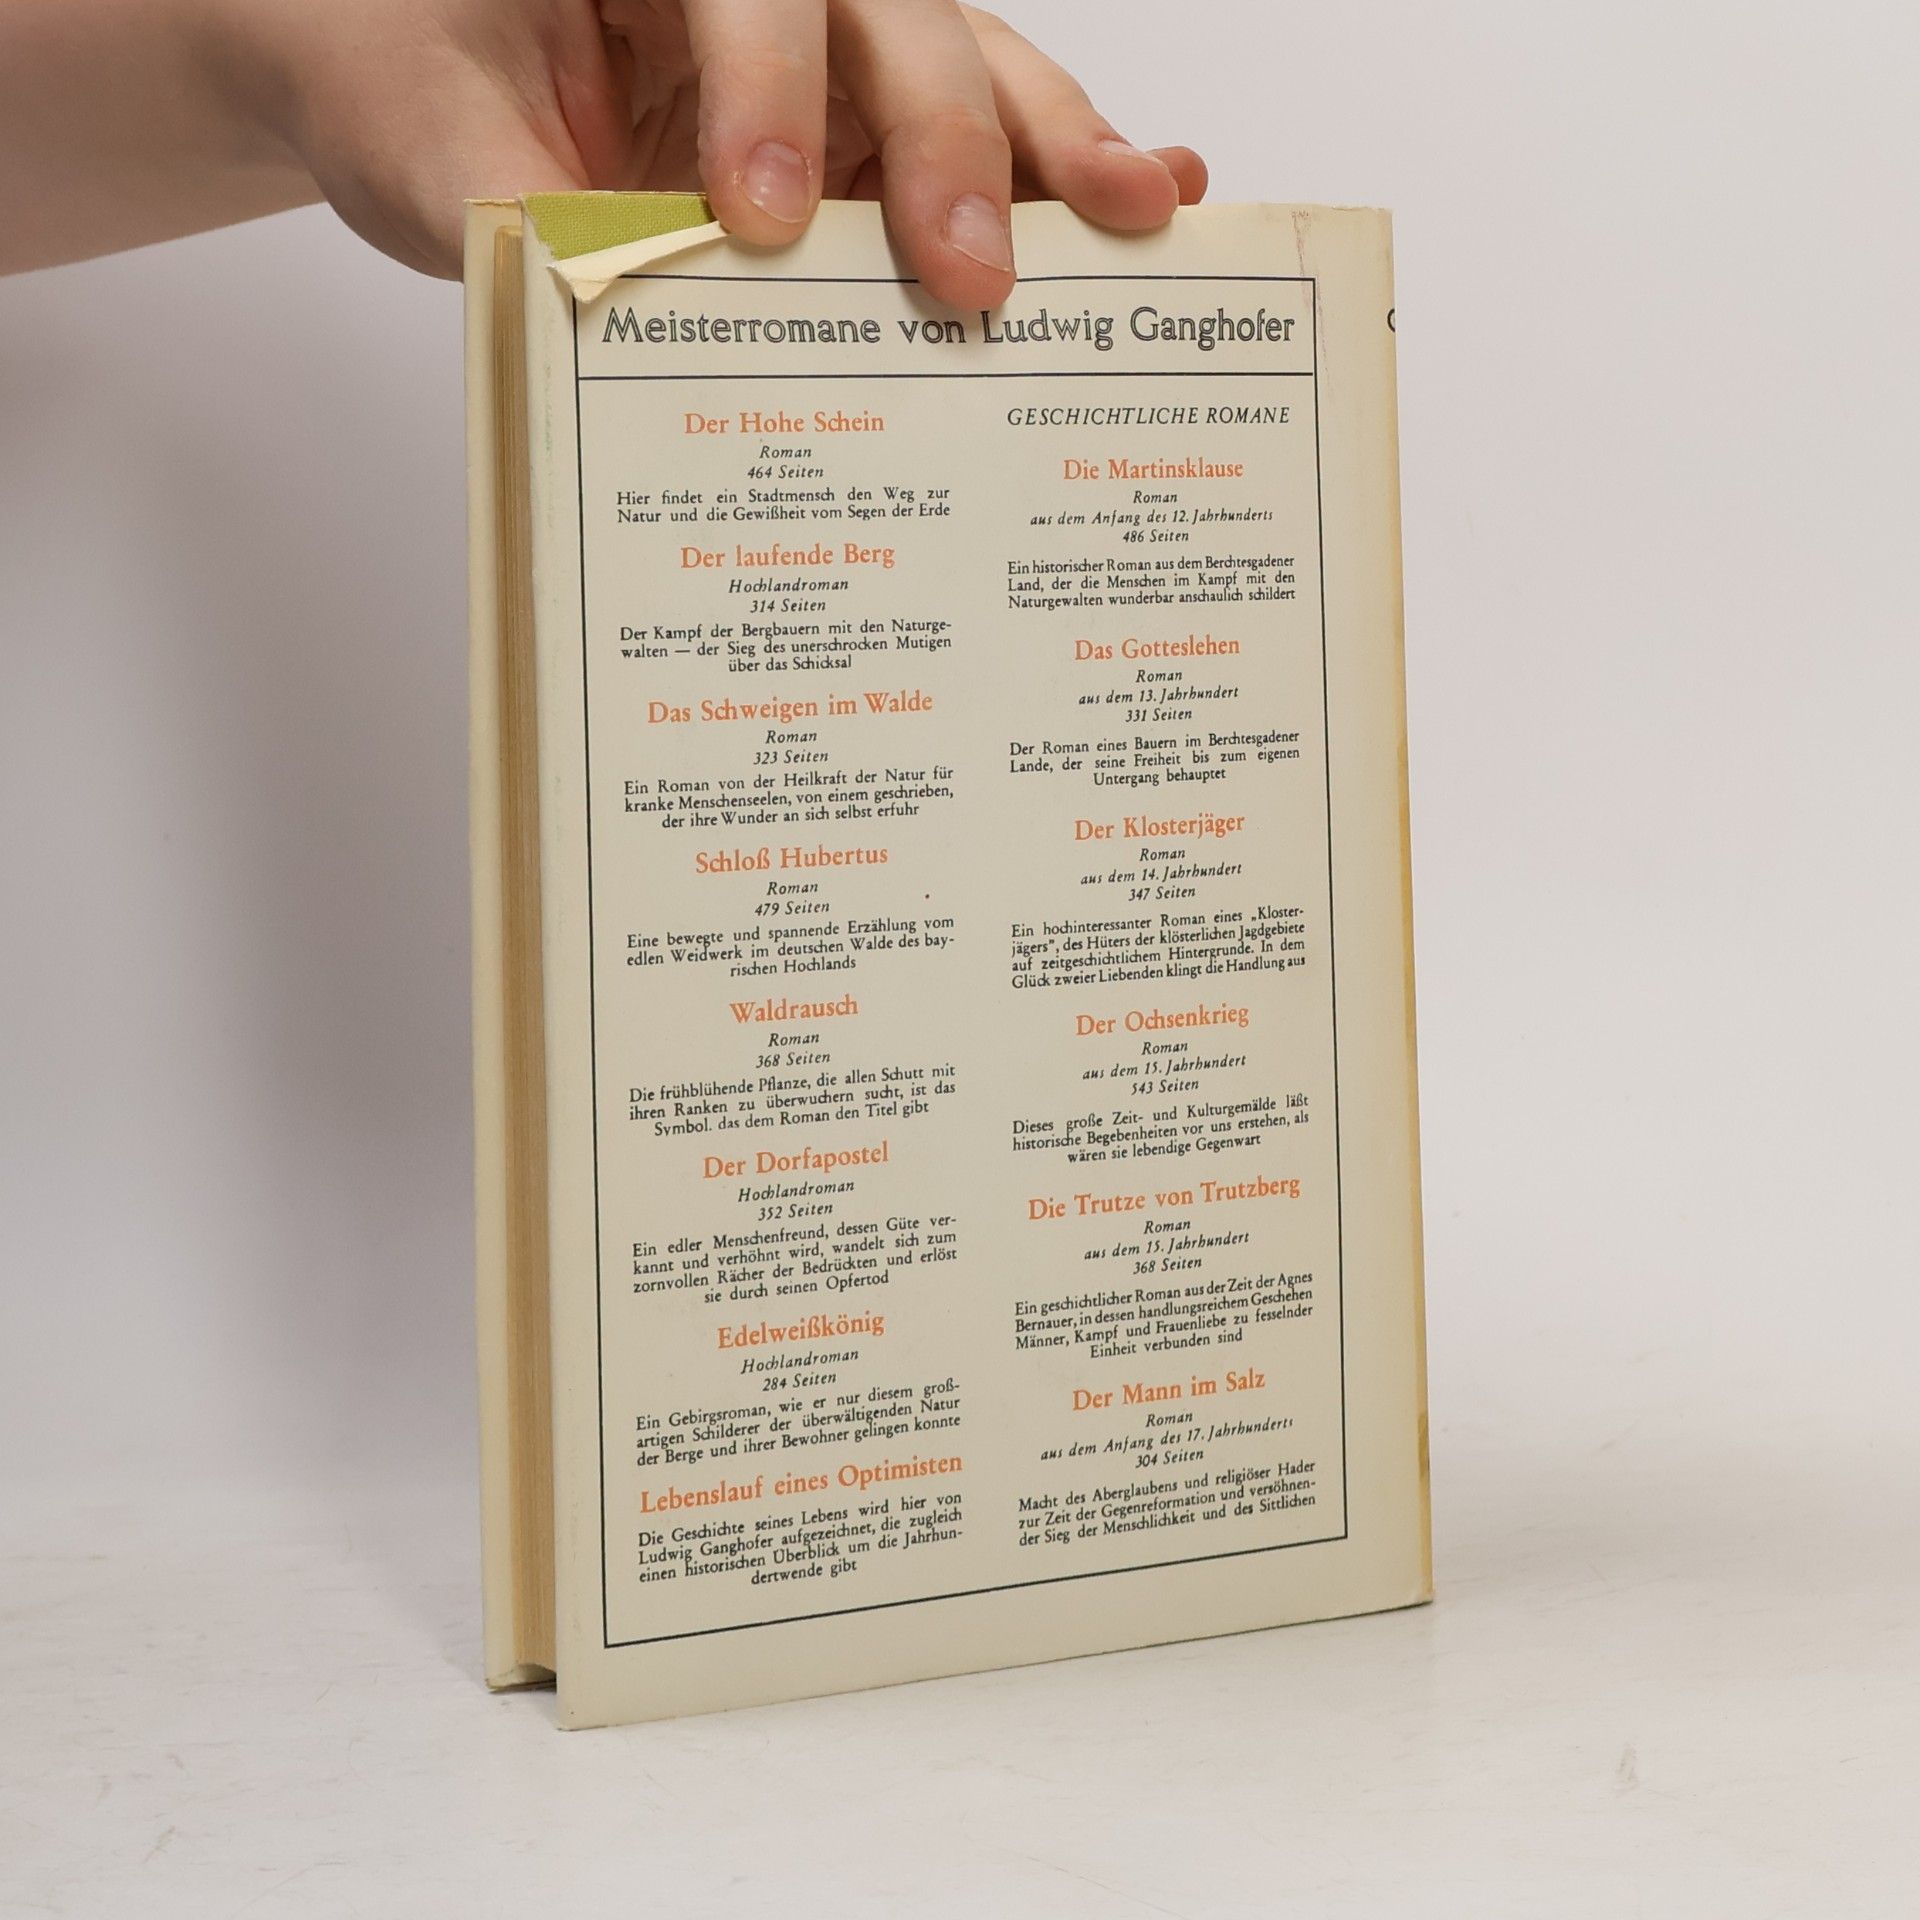 Meisterromane von Ludwig Ganghofer
Der Hohe Schein
Roman
464 Seiten
Hier findet ein Stadtmensch den Weg zur
Natur und die Gewißheit vom Segen der Erde
Der laufende Berg
Hochlandroman
314 Seiten
Der Kampf der Bergbauern mit den Naturge-
walten — der Sieg des unerschrocken Mutigen
über das Schicksal
Das Schweigen im Walde
Roman
323 Seiten
Ein Roman von der Heilkraft der Natur für
kranke Menschenseelen, von einem geschrieben,
der ihre Wunder an sich selbst erfuhr
Schloß Hubertus
Roman
479 Seiten
Eine bewegte und spannende Erzählung vom
edlen Weidwerk im deutschen Walde des bay-
rischen Hochlands
Waldrausch
Roman
368 Seiten
Die frühblühende Pflanze, die allen Schutt mit
ihren Ranken zu überwuchern sucht, ist das
Symbol. das dem Roman den Titel gibt
Der Dorfapostel
Hochlandroman
352 Seiten
Ein edler Menschenfreund, dessen Güte ver-
kannt und verhöhnt wird, wandelt sich zum
zornvollen Rächer der Bedrückten und erlöst
sie durch seinen Opfertod
Edelweißkönig
Hochlandroman
284 Seiten
Ein Gebirgsroman, wie er nur diesem groß-
artigen Schilderer der überwältigenden Natur
der Berge und ihrer Bewohner gelingen konnte
Lebenslauf eines Optimisten
Die Geschichte seines Lebens wird hier von
Ludwig Ganghofer aufgezeichnet, die zugleich
einen historischen Überblick um die Jahrhun-
dertwende gibt
GESCHICHTLICHE ROMANE
Die Martinsklause
Roman
aus dem Anfang des 12. Jahrhunderts
486 Seiten
Ein historischer Roman aus dem Berchtesgadener
Land, der die Menschen im Kampf mit den
Naturgewalten wunderbar anschaulich schildert
Das Gotteslehen
Roman
aus dem 13. Jahrhundert
331 Seiten
Der Roman eines Bauern im Berchtesgadener
Lande, der seine Freiheit bis zum eigenen
Untergang behauptet
Der Klosterjäger
Roman
aus dem 14. Jahrhundert
347 Seiten
Ein hochinteressanter Roman eines „Kloster-
jägers”, des Hüters der klösterlichen Jagdgebiete
auf zeitgeschichtlichem Hintergrunde. In dem
Glück zweier Liebenden klingt die Handlung aus
Der Ochsenkrieg
Roman
aus dem 15. Jahrhundert
543 Seiten
Dieses große Zeit- und Kulturgemälde läßt
historische Begebenheiten vor uns erstehen, als
wären sie lebendige Gegenwart
Die Trutze von Trutzberg
Roman
aus dem 15. Jahrhundert
368 Seiten
Ein geschichtlicher Roman aus der Zeit der Agnes
Bernauer, in dessen handlungsreichem Geschehen
Männer, Kampf und Frauenliebe zu fesselnder
Einheit verbunden sind
Der Mann im Salz
Roman
aus dem Anfang des 17. Jahrhunderts
304 Seiten
Macht des Aberglaubens und religiöser Hader
zur Zeit der Gegenreformation und versöhnen-
der Sieg der Menschlichkeit und des Sittlichen